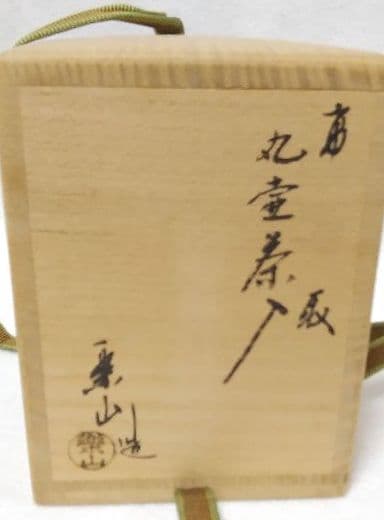 高取
丸壷茶入
楽山造
樂山